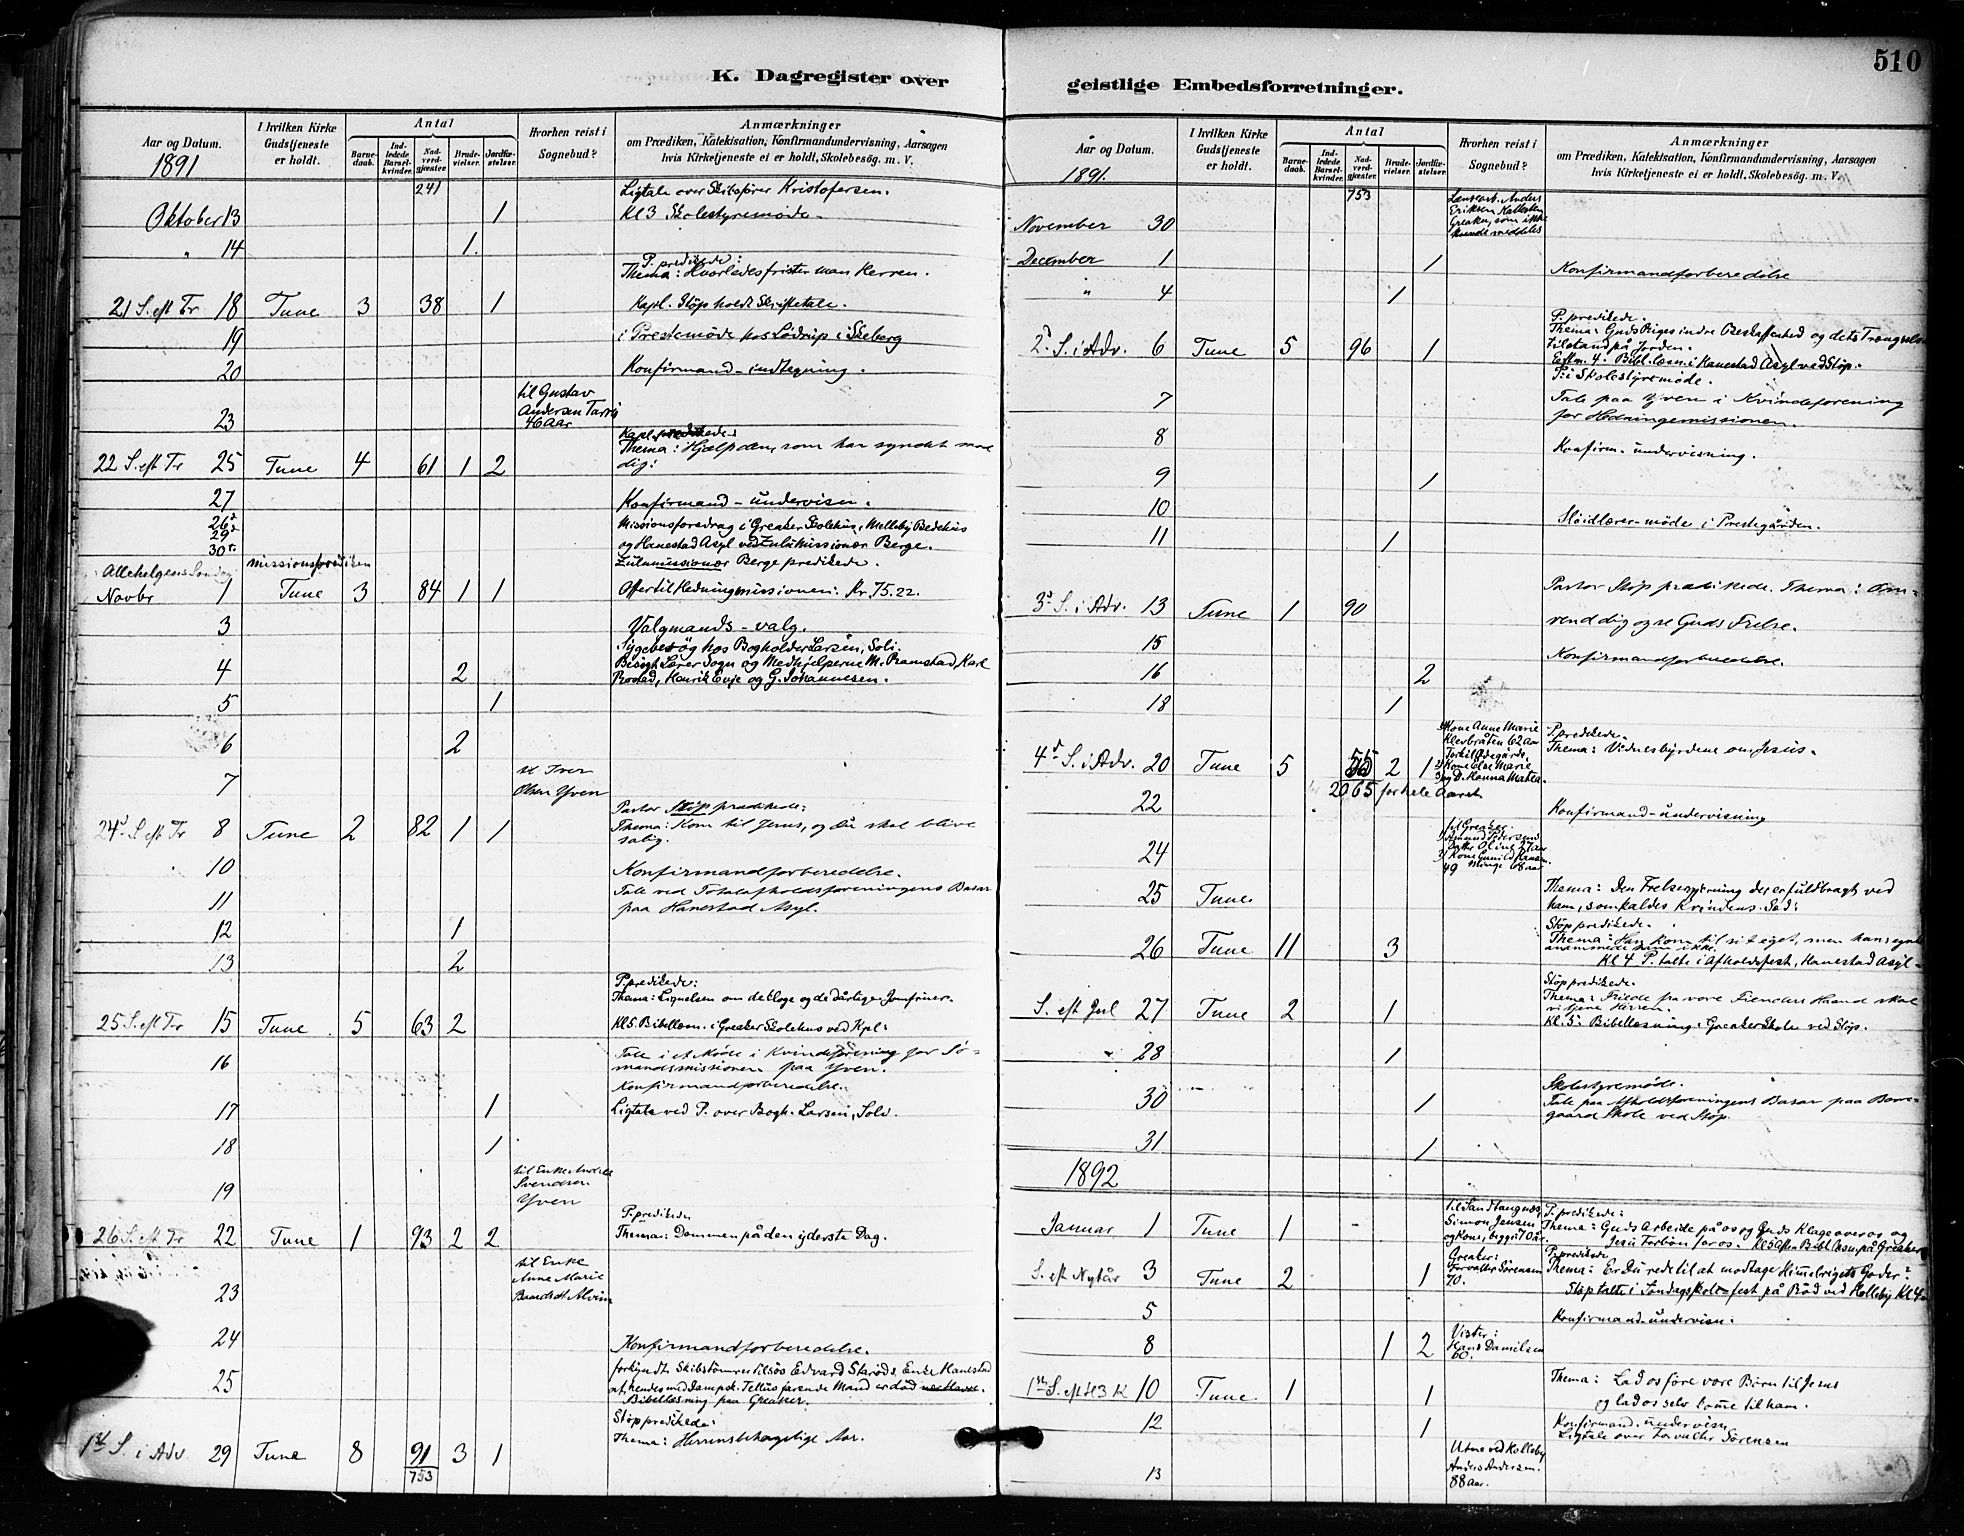 K. Dagregister over
Aar og Datum.
1891
I hvilken Kirke Gudstjeneste er holdt.
Antal
Barnedaab.
Indledede Barselkvinder.
Nadverdgjæster.
Brudevielser.
Jordfæstelser.
Hvorhen reist i Sognebud?
Anmærkninger
om Prædiken, Katekisation, Konfirmandundervisning, Aarsagen
hvis Kirketjeneste ei er holdt, Skolebesøg. m. V.
241 Ligtale over Skibsfører Kristofersen.
Oktober 13 1 Kl 3 Skolestyremøde.
" 14 1.
P. predikede:
Thema: Hvorledes frister man Herren.
21 S. eft Tr 18 Tune 3 38 1 Kapl. Støp holdt Skriftetale.
19 i Prestemøde hos Lødrup i Skeberg
20 Konfirmand-indtegning.
til Gustav
Andersen
23 46 Aar
Kapl. predikede:
Thema: Hjælp dem, som har syndet mod
22 S. eft Tr 25 Tune 4 61 1 2 dig:
27 Konfirmand-undervisn.
26 Missionsforedrag i Greaker Skolehus, Melleby Bedehus
29 og Hanestad Asyl ved Zulumissionær Berge.
30 Zulumissionær Berge predikede.
Allehelgens Søndag missionsprediken
Novbr 1 Tune 3 84 1 1 Offer til Hedningmissionen: Kr 75.22.
3 Valgmands-valg.
Sygebesøg hos Bogholder Larsen, Soli.
4 2 Besøgt Lærer Sogn og Medhjelperne M. Pramstad, Karl
Rostad, Henrik Evje og G. Johannesen.
5 1
6 2
til Iver
7 Olsen Yven
Pastor Støp predikede:
24 S. eft Tr 8 Tune 2 82 1 1 Thema: Kom til Jesus, og Du skal blive
salig.
10 Konfirmandforberedelse.
Tale ved Totalafholdsforeningens Basar
11 paa Hanestad Asyl.
12 1
13 2
P. predikede:
Thema: Lignelsen om de kloge og de dårlige Jomfruer.
25 S. eft Tr 15 Tune 5 63 2 Kl 5. Bibellæsn. i Greaker Skolehus ved Kpl:
Tale i et Møde i Kvindeforening for Sø-
16 mandsmissionen paa Yven.
Konfirmandforberedelse.
17 1 Ligtale ved P. over Bogh. Larsen, Soli.
18 1
til Enke
Svendsen
19 Yven
P. predikede
26 S. eft Tr 22 Tune 1 93 2 2 Thema: Dommen på den yderste Dag.
til Enke
Anne Marie
23 Alvim
24 Konfirmandforberedelse.
forkyndt Skibstømrer Edvard Starøds Enke Hanestad
25 at hendes med Dampsk. Tellus farende Mand er død
Bibellæsning paa Greaker.
Støp predikede:
1st S. i Adv 29 Tune 8 91 3 1 Thema: Herrens behagelige Aar.
753
510
geistlige Embedsforretninger.
Aar og Datum.
1891.
I hvilken Kirke Gudstjeneste er holdt.
Antal
Barnedaab.
Indledede Barselkvinder.
Nadverdgjæster.
Brudevielser.
Jordfæstelser.
Hvorhen reist i Sognebud?
Anmærkninger
om Prædiken, Katekisation, Konfirmandundervisning, Aarsagen
hvis Kirketjeneste ei er holdt, Skolebesøg. m. V.
753 Anders
Eriksen
November 30 Greaker, som ikke
kunde meddeles
December 1 1 Konfirmandforberedelse
" 4 1
P. predikede.
Thema: Guds Riges indre Beskaffenhed og dets Trængsels
2d S. i Adv. 6 Tune 5 96 1 Tilstand på Jorden.
Eftm. 4. Bibl. læsn. i Hanestad Asyl ved Støp.
P. i Skolestyremøde.
7 Tale paa Yven i Kvindeforening
for Hedningemissionen.
8 Konfirm.-undervisning.
9 1
10 Sløidlærer-møde i Prestegården.
11 1
Pastor Støp prædikede. Thema: Om-
3d S. i Adv. 13 Tune 1 90 vend dig og se Guds Frelse.
15 Konfirmandforberedelse.
16 2
18 1
Kone Anne Marie
Klevbråten 62 Aar P. predikede.
Thema: Vidnesbyrdene om Jesus.
4d S. i Adv. 20 Tune 5 55 2 1 Kone Else Marie
og D. Hanna Mathea.
2065 for hele Aaret
22 Konfirmand-undervisning
til Greaker.
Amund Pedersens
24 Datter Oline 27 aar
Kone Gunild Hansen
Minge 68 aar
Thema: Den Frelsergjerning der er fuldbragt ved
25 Tune ham, som kaldes Kvindens Sæd:
Støp predikede.
26 Tune 11 3 Thema: Han kom til sit eget, men hans egne
anammede ham ikke.
Kl 4 P. talte i Afholdsfest, Hanestad Asyl-
Støp predikede.
Thema: Friede fra vore Fienders Haand skal
S. eft Jul 27 Tune 2 1 vi tjene Herren.
Kl. 5: Bibellæsning i Greaker Skole ved Støp.
" 28 1
Skolestyremøde.
30 1 Tale paa Afholdsforeningens Basar paa Borge-
gaard Skole ved Støp.
31 1
1892
til Sandtangen P. predikede:
Januar 1 Tune 1 Simon Jensen Thema: Guds Arbeide på os og Guds Klage over os og
og Kone, begge 70 år. Jesu Forbøn for os. Kl 5 Eftm Bibl. læsn. på Greaker
Greaker: P. predikede
S. eft Nytår 3 Tune 2 1 Forvalter Sørensen Thema: Er Du rede til at modtage Himmelrigets Goder?
70. Støp talte i Søndagskolefest på Råd ved Kolleby Kl 4
5 Konfirmand-undervisn:
8 1 2 Vister:
Hans Danielsen
60.
1st S. eft H 3 K 10 Tune 1 1 Thema: Lad os føre vore Børn til Jesus
og lad os selv komme til ham.
12 1 Konfirmand.undervisn
Ligtale over Forvalter Sørensen
Utne ved Kolleby
13 Anders Andersen.
88 aar.